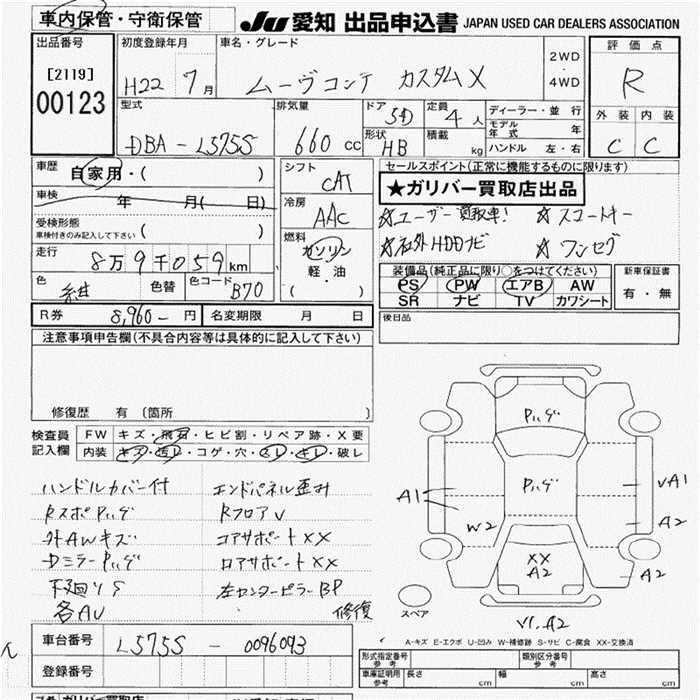 車内保管・守衛保管
JU 愛知 出品申込書 JAPAN USED CAR DEALERS ASSOCIATION
出品番号 初度登録年月 車名・グレード 評価点
[2119] 2WD
00123 H22 7月 ムーヴコンテ カスタムX ・ R
4WD
型式 排気量 ドア 5D 定員 4人 ディーラー・並行 外装 内装
DBA-L575S 660cc 形状 HB 積載 kg モデル年式 年 C C
ハンドル 左・右
車歴 自家用・( ) シフト CAT セールスポイント(正常に機能するものに限ります)
★ガリバー買取店出品
車検 年 月( 日) 冷房 AAC ☆ユーザー買取車! ☆スマートキー
受検形態 ( )
車検付きのみ記入して下さい
☆社外HDDナビ ☆ワンセグ
走行 8万9千059km 燃料 ガソリン
軽・油
( )
装備品(純正品に限り○をつけてください) 新車保証書
色 紺 色替 色コード B70 PS PW エアB AW 有・無
SR ナビ TV カワシート
R券 8,960-円 名変期限 月 日 後日品
注意事項申告欄(不具合内容等は具体的に記入して下さい)
修復歴 有 (箇所 )
検査員 FW キズ・飛石・ヒビ割・リペア跡・X要
記入欄 内装 キズ・汚レ・コゲ・穴・スレ・キレ・破レ
ハンドルカバー付 エンドパネル歪み
RスポPハゲ RフロアV
外AWキズ コアサポートXX
DミラーPハゲ ロアサポートXX
下廻りS 左センターピラーBP
各AV 修復
Pハゲ
Pハゲ
A1 VA1
W2 A2
XX
A2 A2
スペア
V1,A2
A-キズ E-エクボ U-凹み W-補修跡 S-サビ C-腐食 XX-交換済
車台番号 L575S - 0096093
登録番号
形式指定番号 参考 類別区分番号 参考
車庫証明用 参考 長さ cm 幅 cm 高さ cm
ん
ガリバー買取店